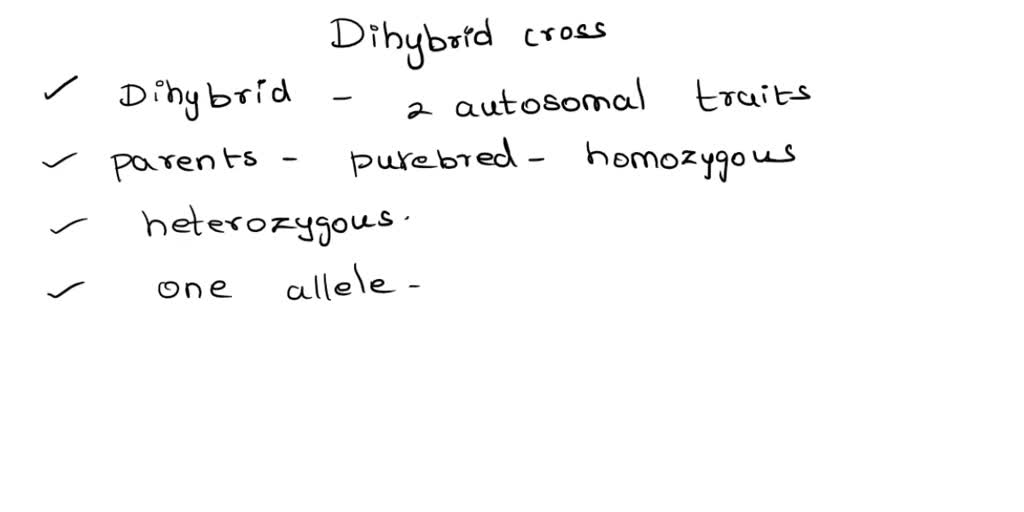 Dihybrid cross
✓ Dihybrid - 2 autosomal traits
✓ parents - purebred - homozygous
✓ heterozygous.
✓ one allele -